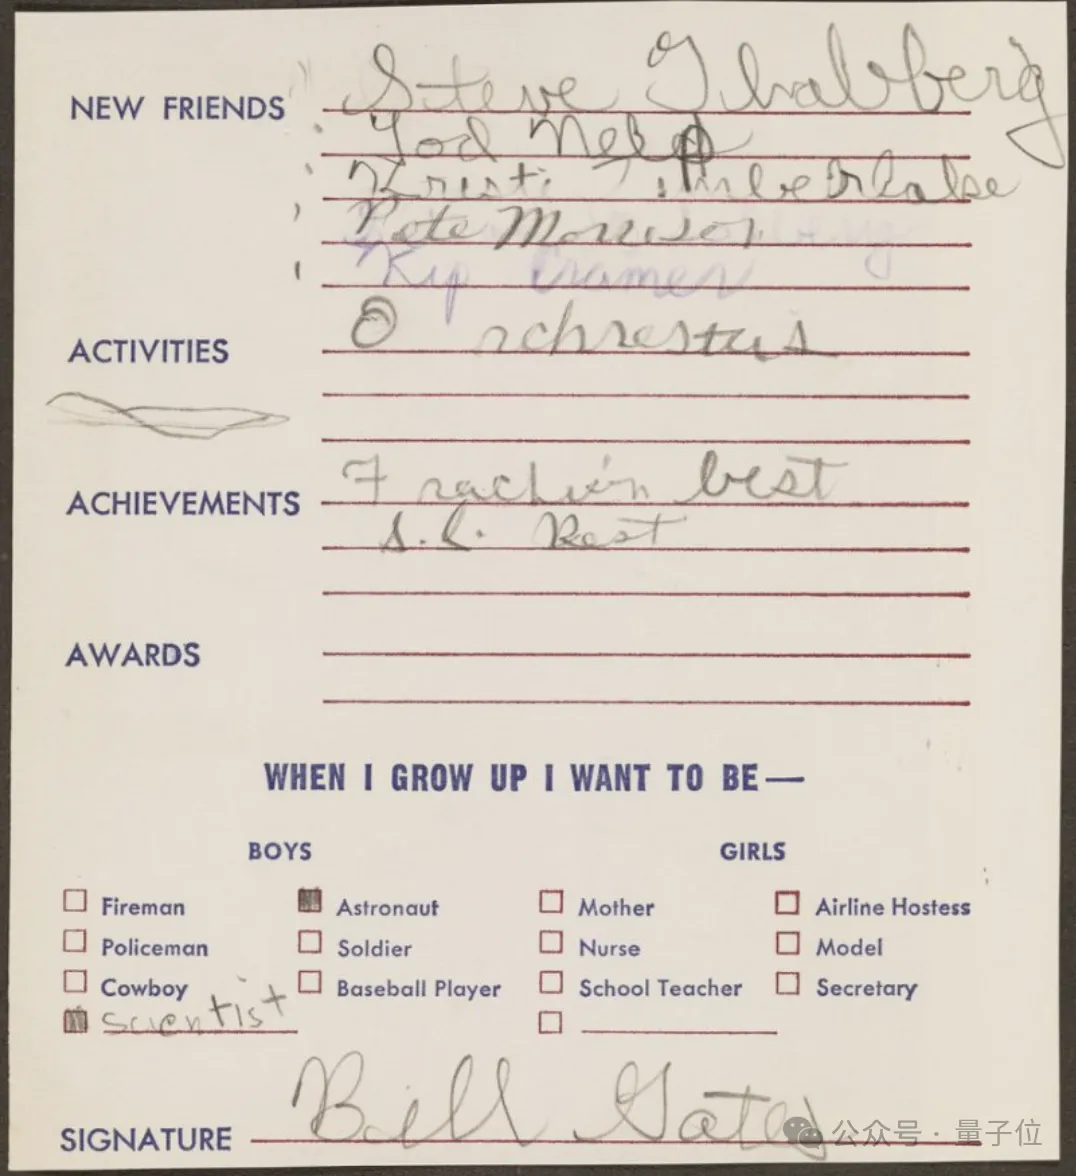 NEW FRIENDS Steve
Kristi Timberlake
Pete Morrison
Kip Cramer
ACTIVITIES
ACHIEVEMENTS best
s.l. Rest
AWARDS
WHEN I GROW UP I WANT TO BE—
BOYS GIRLS
Fireman Astronaut Mother Airline Hostess
Policeman Soldier Nurse Model
Cowboy Baseball Player School Teacher Secretary
scientist
SIGNATURE Bill Gates
公众号 · 量子位